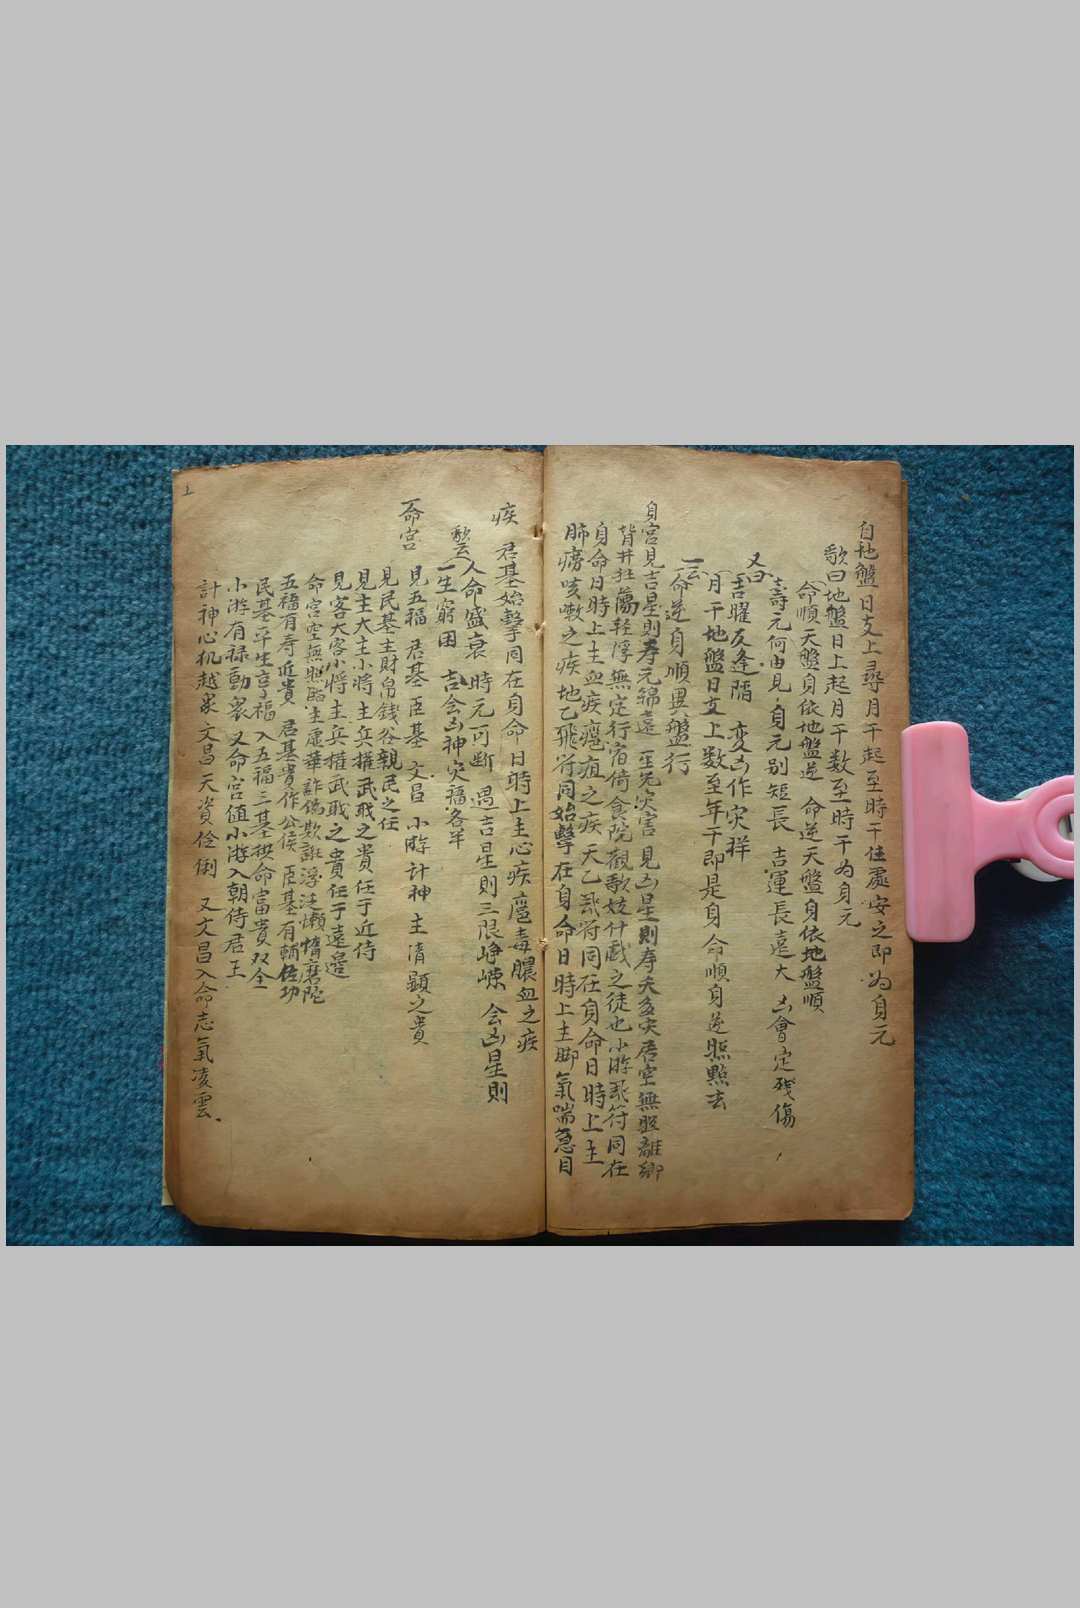 自地盤日支上尋月干起至時干住處安之即为身元
歌曰地盤日上起月干数至時干为身元
命順天盤身依地盤逆 命逆天盤身依地盤順
壽元何由見 身元别短長 吉運長遠大 凶會定残傷
又曰
吉曜反逢陷 変凶作灾祥
月干地盤日支上数至年干即是身命順身逆照點去
一云
命逆身順異盤行
身宮見吉星則寿元綿遠一生无灾害見凶星則寿夭多灾居空無照離鄉
背井狂蕩輕浮無定行宿倚食院觀歌妓什戲之徒也小游飛符同在
身命日時上主血疾癰疽之疾天乙飛符同在身命日時上主
肺癆咳嗽之疾地乙飛符同始擊在身命日時上主脚氣喘急目
疾 君基始擊同在身命日時上主心疾瘟毒膿血之疾
歌云
人命盛衰時元可断 遇吉星則三限崢嶸 会凶星則
一生窮困 吉会凶神灾福各半
命宮 見五福 君基 臣基 文昌 小游 計神 主清顕之貴
見民基主財帛錢谷親民之任
見主大主小将主兵權武职之貴任于近侍
見客大客小将主兵權武职之貴任于遠邉
命宮空無照臨主虛華詐偽欺誑浮泛懒惰磨陀
五福有寿近貴 君基貴作公侯 臣基有輔佐功
民基平生享福 入五福三基拱命富貴双全
小游有禄動衆 又命宮值小游入朝侍君王
計神心机越衆 文昌天資伶俐 又文昌入命志氣凌雲